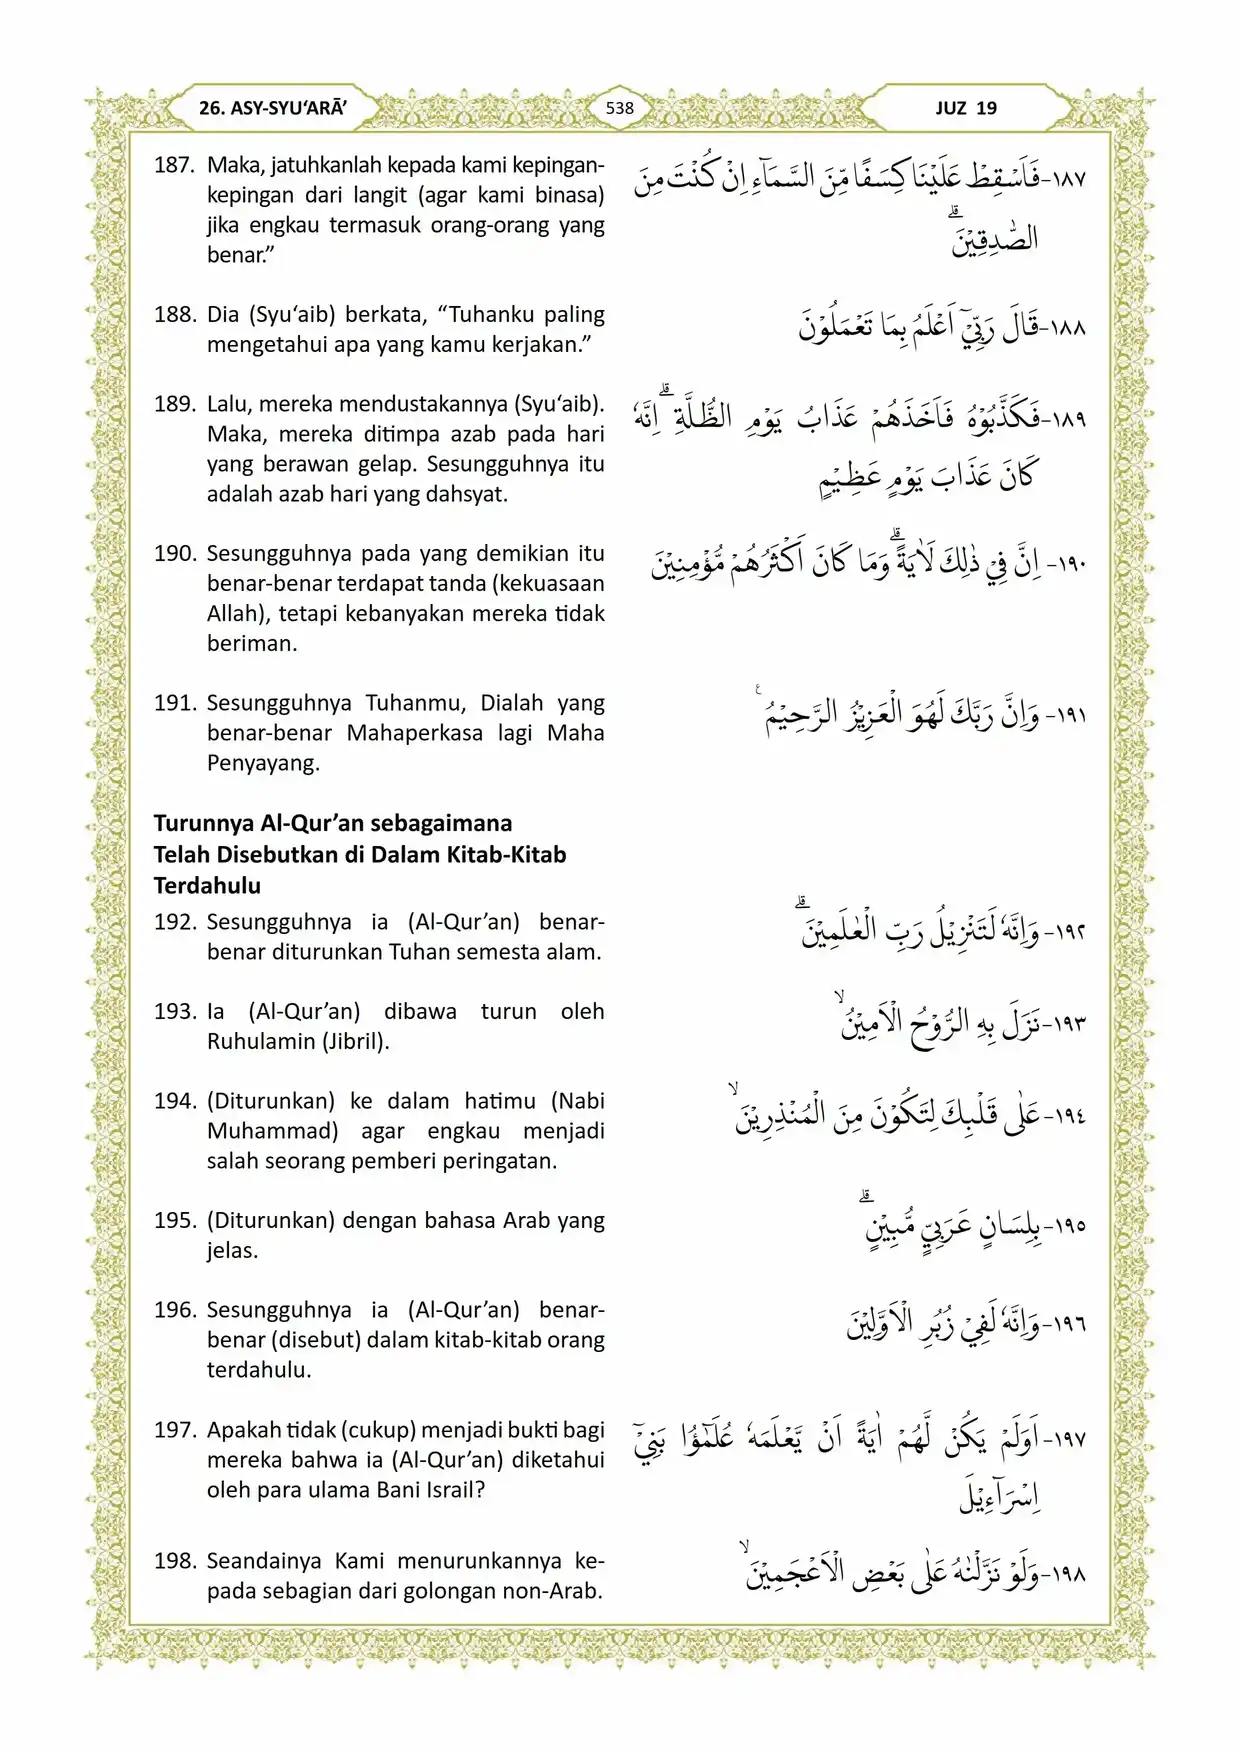 26. ASY-SYU‘ARĀ’
538
JUZ 19
187. Maka, jatuhkanlah kepada kami kepingan-
kepingan dari langit (agar kami binasa)
jika engkau termasuk orang-orang yang
benar.”
١٨٧-فَاَسْقِطْ عَلَيْنَا كِسَفًا مِّنَ السَّمَاۤءِ اِنْ كُنْتَ مِنَ
الصّٰدِقِيْنَ ۗ
188. Dia (Syu‘aib) berkata, “Tuhanku paling
mengetahui apa yang kamu kerjakan.”
١٨٨-قَالَ رَبِّيْٓ اَعْلَمُ بِمَا تَعْمَلُوْنَ
189. Lalu, mereka mendustakannya (Syu‘aib).
Maka, mereka ditimpa azab pada hari
yang berawan gelap. Sesungguhnya itu
adalah azab hari yang dahsyat.
١٨٩-فَكَذَّبُوْهُ فَاَخَذَهُمْ عَذَابُ يَوْمِ الظُّلَّةِ ۗاِنَّهٗ
كَانَ عَذَابَ يَوْمٍ عَظِيْمٍ
190. Sesungguhnya pada yang demikian itu
benar-benar terdapat tanda (kekuasaan
Allah), tetapi kebanyakan mereka tidak
beriman.
١٩٠- اِنَّ فِيْ ذٰلِكَ لَاٰيَةً ۗوَمَا كَانَ اَكْثَرُهُمْ مُّؤْمِنِيْنَ
191. Sesungguhnya Tuhanmu, Dialah yang
benar-benar Mahaperkasa lagi Maha
Penyayang.
١٩١- وَاِنَّ رَبَّكَ لَهُوَ الْعَزِيْزُ الرَّحِيْمُ ࣖ
Turunnya Al-Qur’an sebagaimana
Telah Disebutkan di Dalam Kitab-Kitab
Terdahulu
192. Sesungguhnya ia (Al-Qur’an) benar-
benar diturunkan Tuhan semesta alam.
١٩٢- وَاِنَّهٗ لَتَنْزِيْلُ رَبِّ الْعٰلَمِيْنَ ۗ
193. Ia (Al-Qur’an) dibawa turun oleh
Ruhulamin (Jibril).
١٩٣-نَزَلَ بِهِ الرُّوْحُ الْاَمِيْنُ ۙ
194. (Diturunkan) ke dalam hatimu (Nabi
Muhammad) agar engkau menjadi
salah seorang pemberi peringatan.
١٩٤-عَلٰى قَلْبِكَ لِتَكُوْنَ مِنَ الْمُنْذِرِيْنَ ۙ
195. (Diturunkan) dengan bahasa Arab yang
jelas.
١٩٥-بِلِسَانٍ عَرَبِيٍّ مُّبِيْنٍ ۗ
196. Sesungguhnya ia (Al-Qur’an) benar-
benar (disebut) dalam kitab-kitab orang
terdahulu.
١٩٦-وَاِنَّهٗ لَفِيْ زُبُرِ الْاَوَّلِيْنَ
197. Apakah tidak (cukup) menjadi bukti bagi
mereka bahwa ia (Al-Qur’an) diketahui
oleh para ulama Bani Israil?
١٩٧-اَوَلَمْ يَكُنْ لَّهُمْ اٰيَةً اَنْ يَّعْلَمَهٗ عُلَمٰۤؤُا بَنِيْٓ
اِسْرَاۤءِيْلَ
198. Seandainya Kami menurunkannya ke-
pada sebagian dari golongan non-Arab.
١٩٨-وَلَوْ نَزَّلْنٰهُ عَلٰى بَعْضِ الْاَعْجَمِيْنَ ۙ